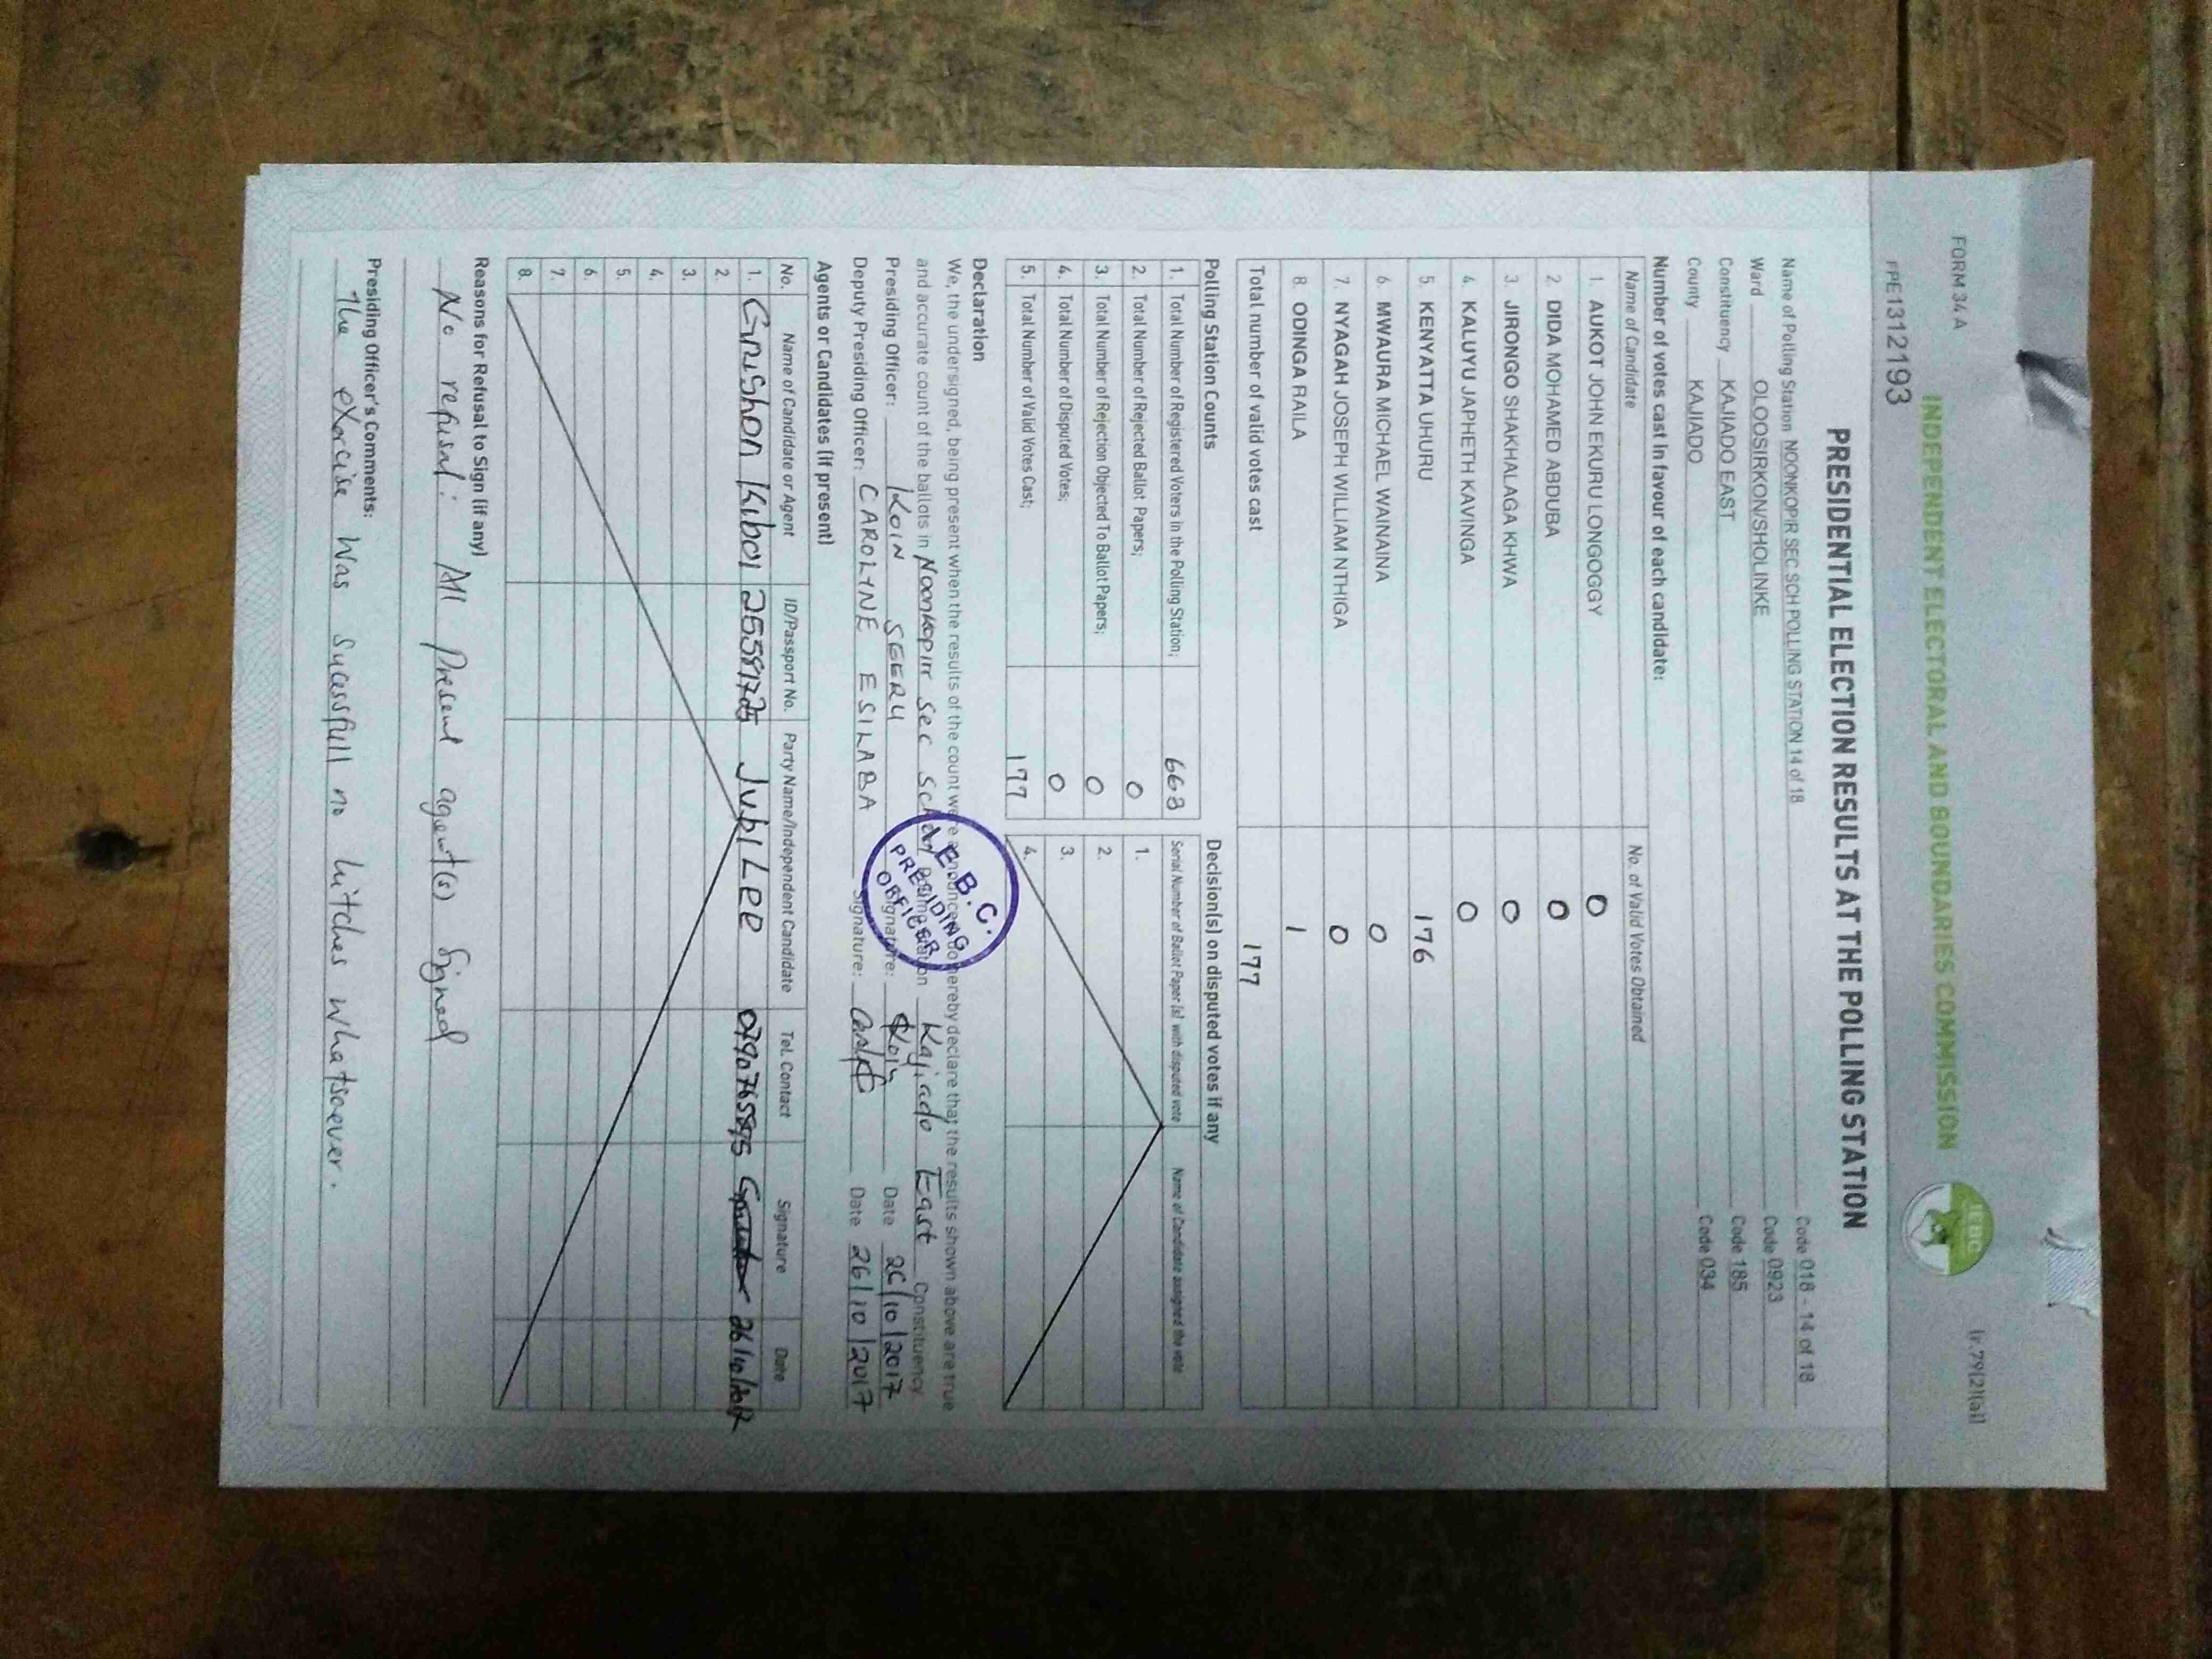 FORM 34 A
(r.79(2)(a))
INDEPENDENT ELECTORAL AND BOUNDARIES COMMISSION
IEBC
FPE1312193
PRESIDENTIAL ELECTION RESULTS AT THE POLLING STATION
Name of Polling Station NOONKOPIR SEC SCH POLLING STATION 14 of 18 Code 018 - 14 of 18
Ward OLOOSIRKON/SHOLINKE Code 0923
Constituency KAJIADO EAST Code 185
County KAJIADO Code 034
Number of votes cast in favour of each candidate:
Name of Candidate No. of Valid Votes Obtained
1. AUKOT JOHN EKURU LONGOGGY 0
2. DIDA MOHAMED ABDUBA 0
3. JIRONGO SHAKHALAGA KHWA 0
4. KALUYU JAPHETH KAVINGA 0
5. KENYATTA UHURU 176
6. MWAURA MICHAEL WAINAINA 0
7. NYAGAH JOSEPH WILLIAM NTHIGA 0
8. ODINGA RAILA 1
Total number of valid votes cast 177
Polling Station Counts
1. Total Number of Registered Voters in the Polling Station; 663
2. Total Number of Rejected Ballot Papers; 0
3. Total Number of Rejection Objected To Ballot Papers; 0
4. Total Number of Disputed Votes; 0
5. Total Number of Valid Votes Cast; 177
Decision(s) on disputed votes if any
Serial Number of Ballot Paper (s) with disputed vote Name of Candidate assigned the vote
1.
2.
3.
4.
Declaration
We, the undersigned, being present when the results of the count were announced do hereby declare that the results shown above are true
and accurate count of the ballots in Noonkopirr Sec School Polling Station Kajiado East Constituency
Presiding Officer: KOIN SGERU Signature: Koin Date 26/10/2017
Deputy Presiding Officer: CAROLYNE ESILABA Signature: Date 26/10/2017
E.B.C.
PRESIDING
OFFICER
Agents or Candidates (if present)
No. Name of Candidate or Agent ID/Passport No. Party Name/Independent Candidate Tel. Contact Signature Date
1. Grishon Kiboi JubiLee 26/10/2017
2.
3.
4.
5.
6.
7.
8.
Reasons for Refusal to Sign (if any)
No refusal: All Present agent(s) Signed
Presiding Officer's Comments:
The exercise was sucessfull no hitches whatsoever.